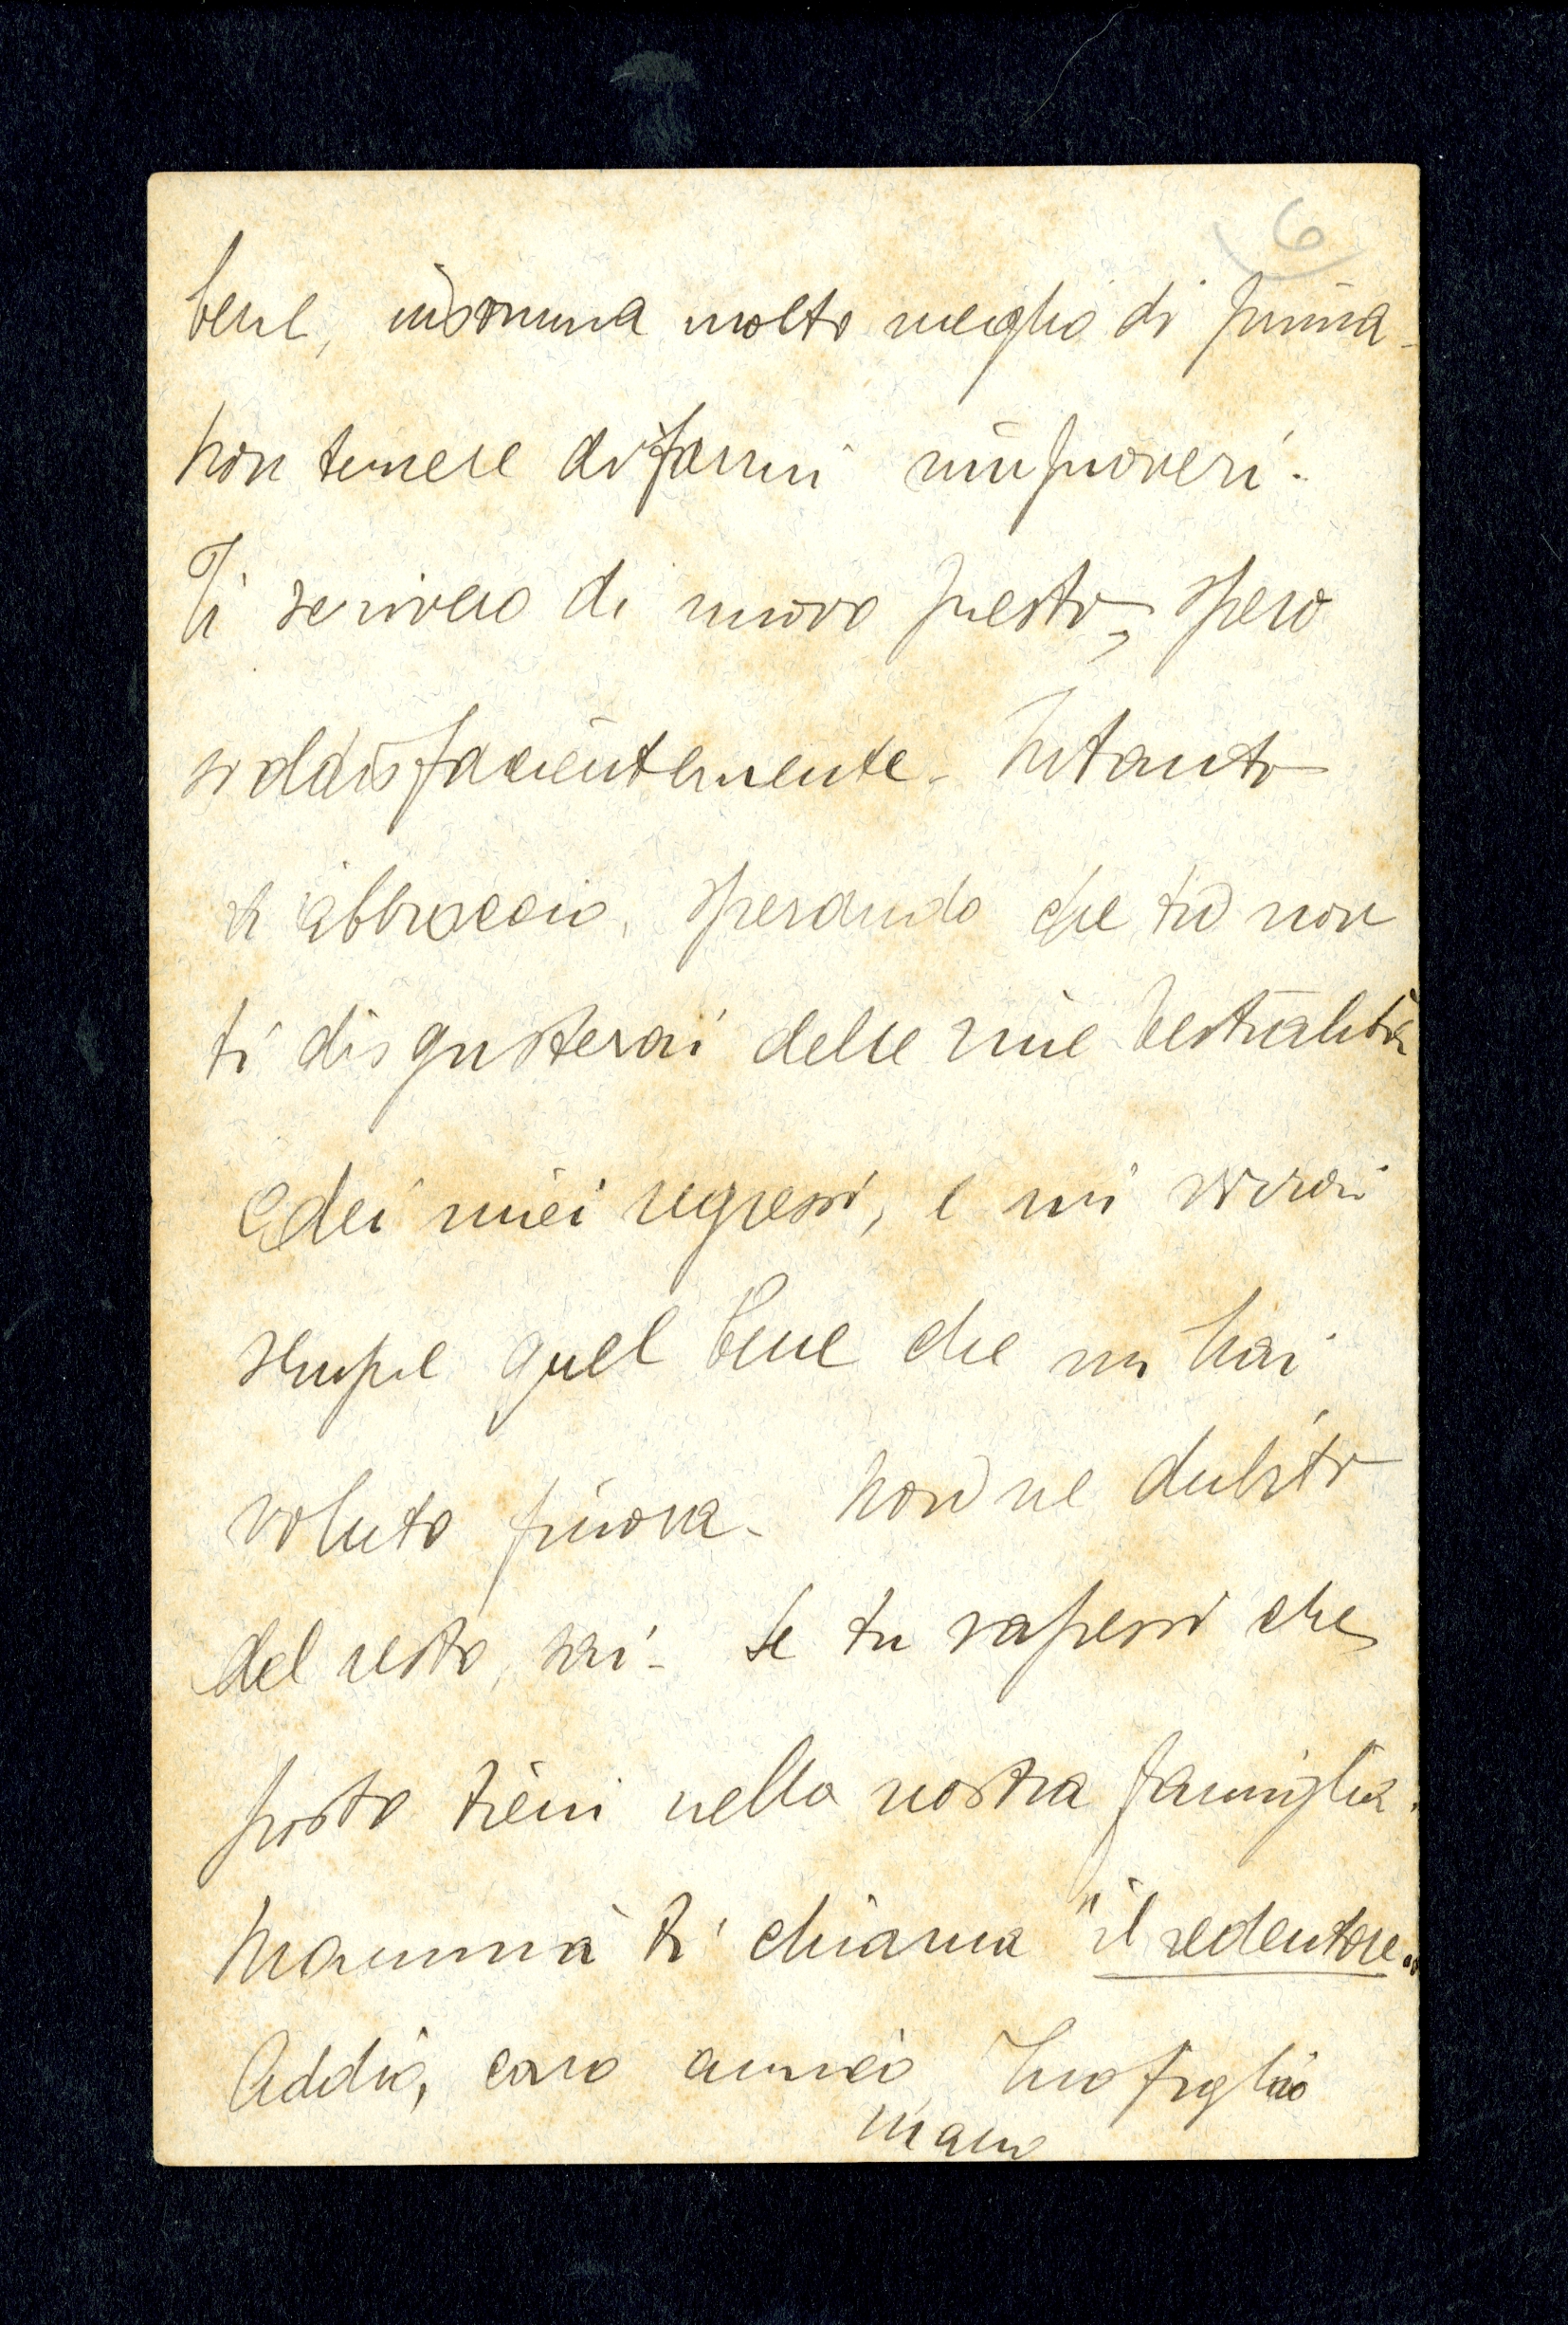 6
bene, insomma molto meglio di prima.
Non temere di farmi rimproveri.
Ti scriverò di nuovo presto, spero
soddisfacientemente. Intanto
ti abbraccio, sperando che tu non
ti disgusterai delle mie bestialità
e dei miei regressi, e mi vorrai
sempre quel bene che mi hai
voluto finora. Non ne dubito
del resto, sai. Se tu sapessi che
posto tieni nella nostra famiglia.
Mammà ti chiama "il redentore."
Addio, caro amico Tuo figlio